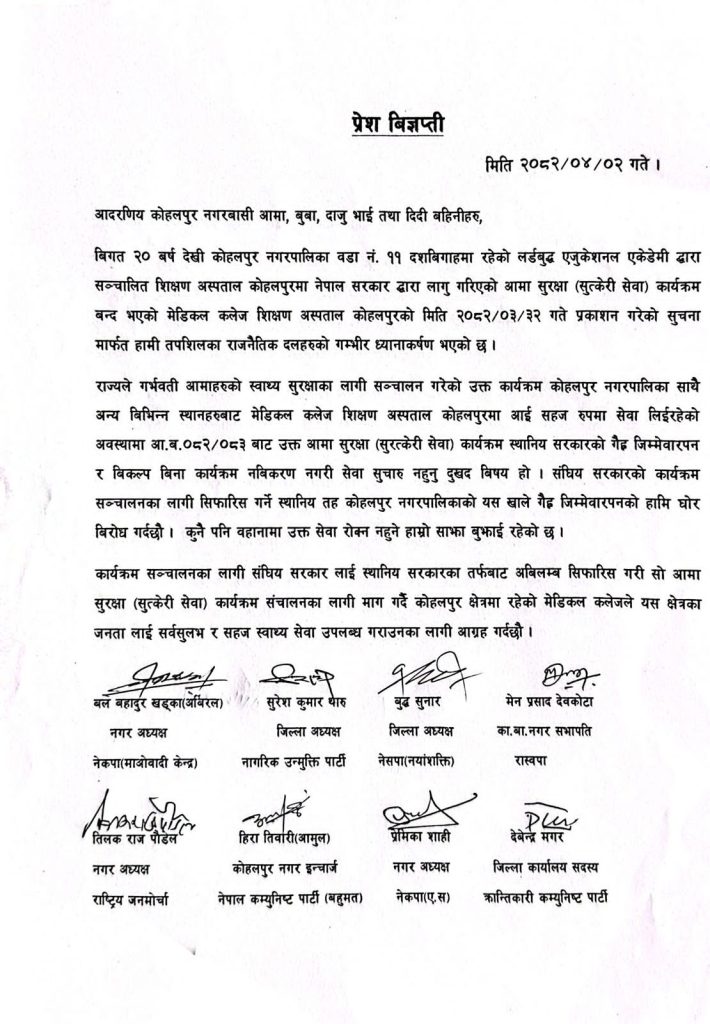 प्रेश बिज्ञप्ती
मिति २०८२/०४/०२ गते ।
आदरणिय कोहलपुर नगरबासी आमा, बुबा, दाजु भाई तथा दिदी बहिनीहरु,
बिगत २० बर्ष देखी कोहलपुर नगरपालिका वडा नं. ११ दशबिगाहमा रहेको लर्डबुद्ध एजुकेशनल एकेडेमी द्वारा
सञ्चालित शिक्षण अस्पताल कोहलपुरमा नेपाल सरकार द्वारा लागु गरिएको आमा सुरक्षा (सुत्केरी सेवा) कार्यक्रम
बन्द भएको मेडिकल कलेज शिक्षण अस्पताल कोहलपुरको मिति २०८२/०३/३२ गते प्रकाशन गरेको सुचना
मार्फत हामी तपशिलका राजनैतिक दलहरुको गम्भीर ध्यानाकर्षण भएको छ ।
राज्यले गर्भवती आमाहरुको स्वाथ्य सुरक्षाका लागी सञ्चालन गरेको उक्त कार्यक्रम कोहलपुर नगरपालिका साथै
अन्य बिभिन्न स्थानहरुबाट मेडिकल कलेज शिक्षण अस्पताल कोहलपुरमा आई सहज रुपमा सेवा लिईरहेको
अवस्थामा आ.ब.०८२/०८३ बाट उक्त आमा सुरक्षा (सुरत्केरी सेवा) कार्यक्रम स्थानिय सरकारको गैह्र जिम्मेवारपन
र बिकल्प बिना कार्यक्रम नबिकरण नगरी सेवा सुचारु नहुनु दुखद बिषय हो । संघिय सरकारको कार्यक्रम
सञ्चालनका लागी सिफारिस गर्ने स्थानिय तह कोहलपुर नगरपालिकाको यस खाले गैह्र जिम्मेवारपनको हामि घोर
बिरोध गर्दछौ । कुनै पनि वहानामा उक्त सेवा रोक्न नहुने हाम्रो साझा बुझाई रहेको छ ।
कार्यक्रम सञ्चालनका लागी संघिय सरकार लाई स्थानिय सरकारका तर्फबाट अबिलम्ब सिफारिस गरी सो आमा
सुरक्षा (सुत्केरी सेवा) कार्यक्रम संचालनका लागी माग गर्दै कोहलपुर क्षेत्रमा रहेको मेडिकल कलेजले यस क्षेत्रका
जनता लाई सर्वसुलभ र सहज स्वाथ्य सेवा उपलब्ध गराउनका लागी आग्रह गर्दछौ ।
बल बहादुर खड्का(अबिरल) सुरेश कुमार थारु बुद्ध सुनार मेन प्रसाद देवकोटा
नगर अध्यक्ष जिल्ला अध्यक्ष जिल्ला अध्यक्ष का.बा.नगर सभापति
नेकपा(माओवादी केन्द्र) नागरिक उन्मुक्ति पार्टी नेसपा(नयांशक्ति) रास्वपा
तिलक राज पौडेल हिरा तिवारी(आमुल) प्रेमिका शाही देबेन्द्र मगर
नगर अध्यक्ष कोहलपुर नगर इन्चार्ज नगर अध्यक्ष जिल्ला कार्यालय सदस्य
राष्ट्रिय जनमोर्चा नेपाल कम्युनिष्ट पार्टी (बहुमत) नेकपा(ए.स) क्रान्तिकारी कम्युनिष्ट पार्टी